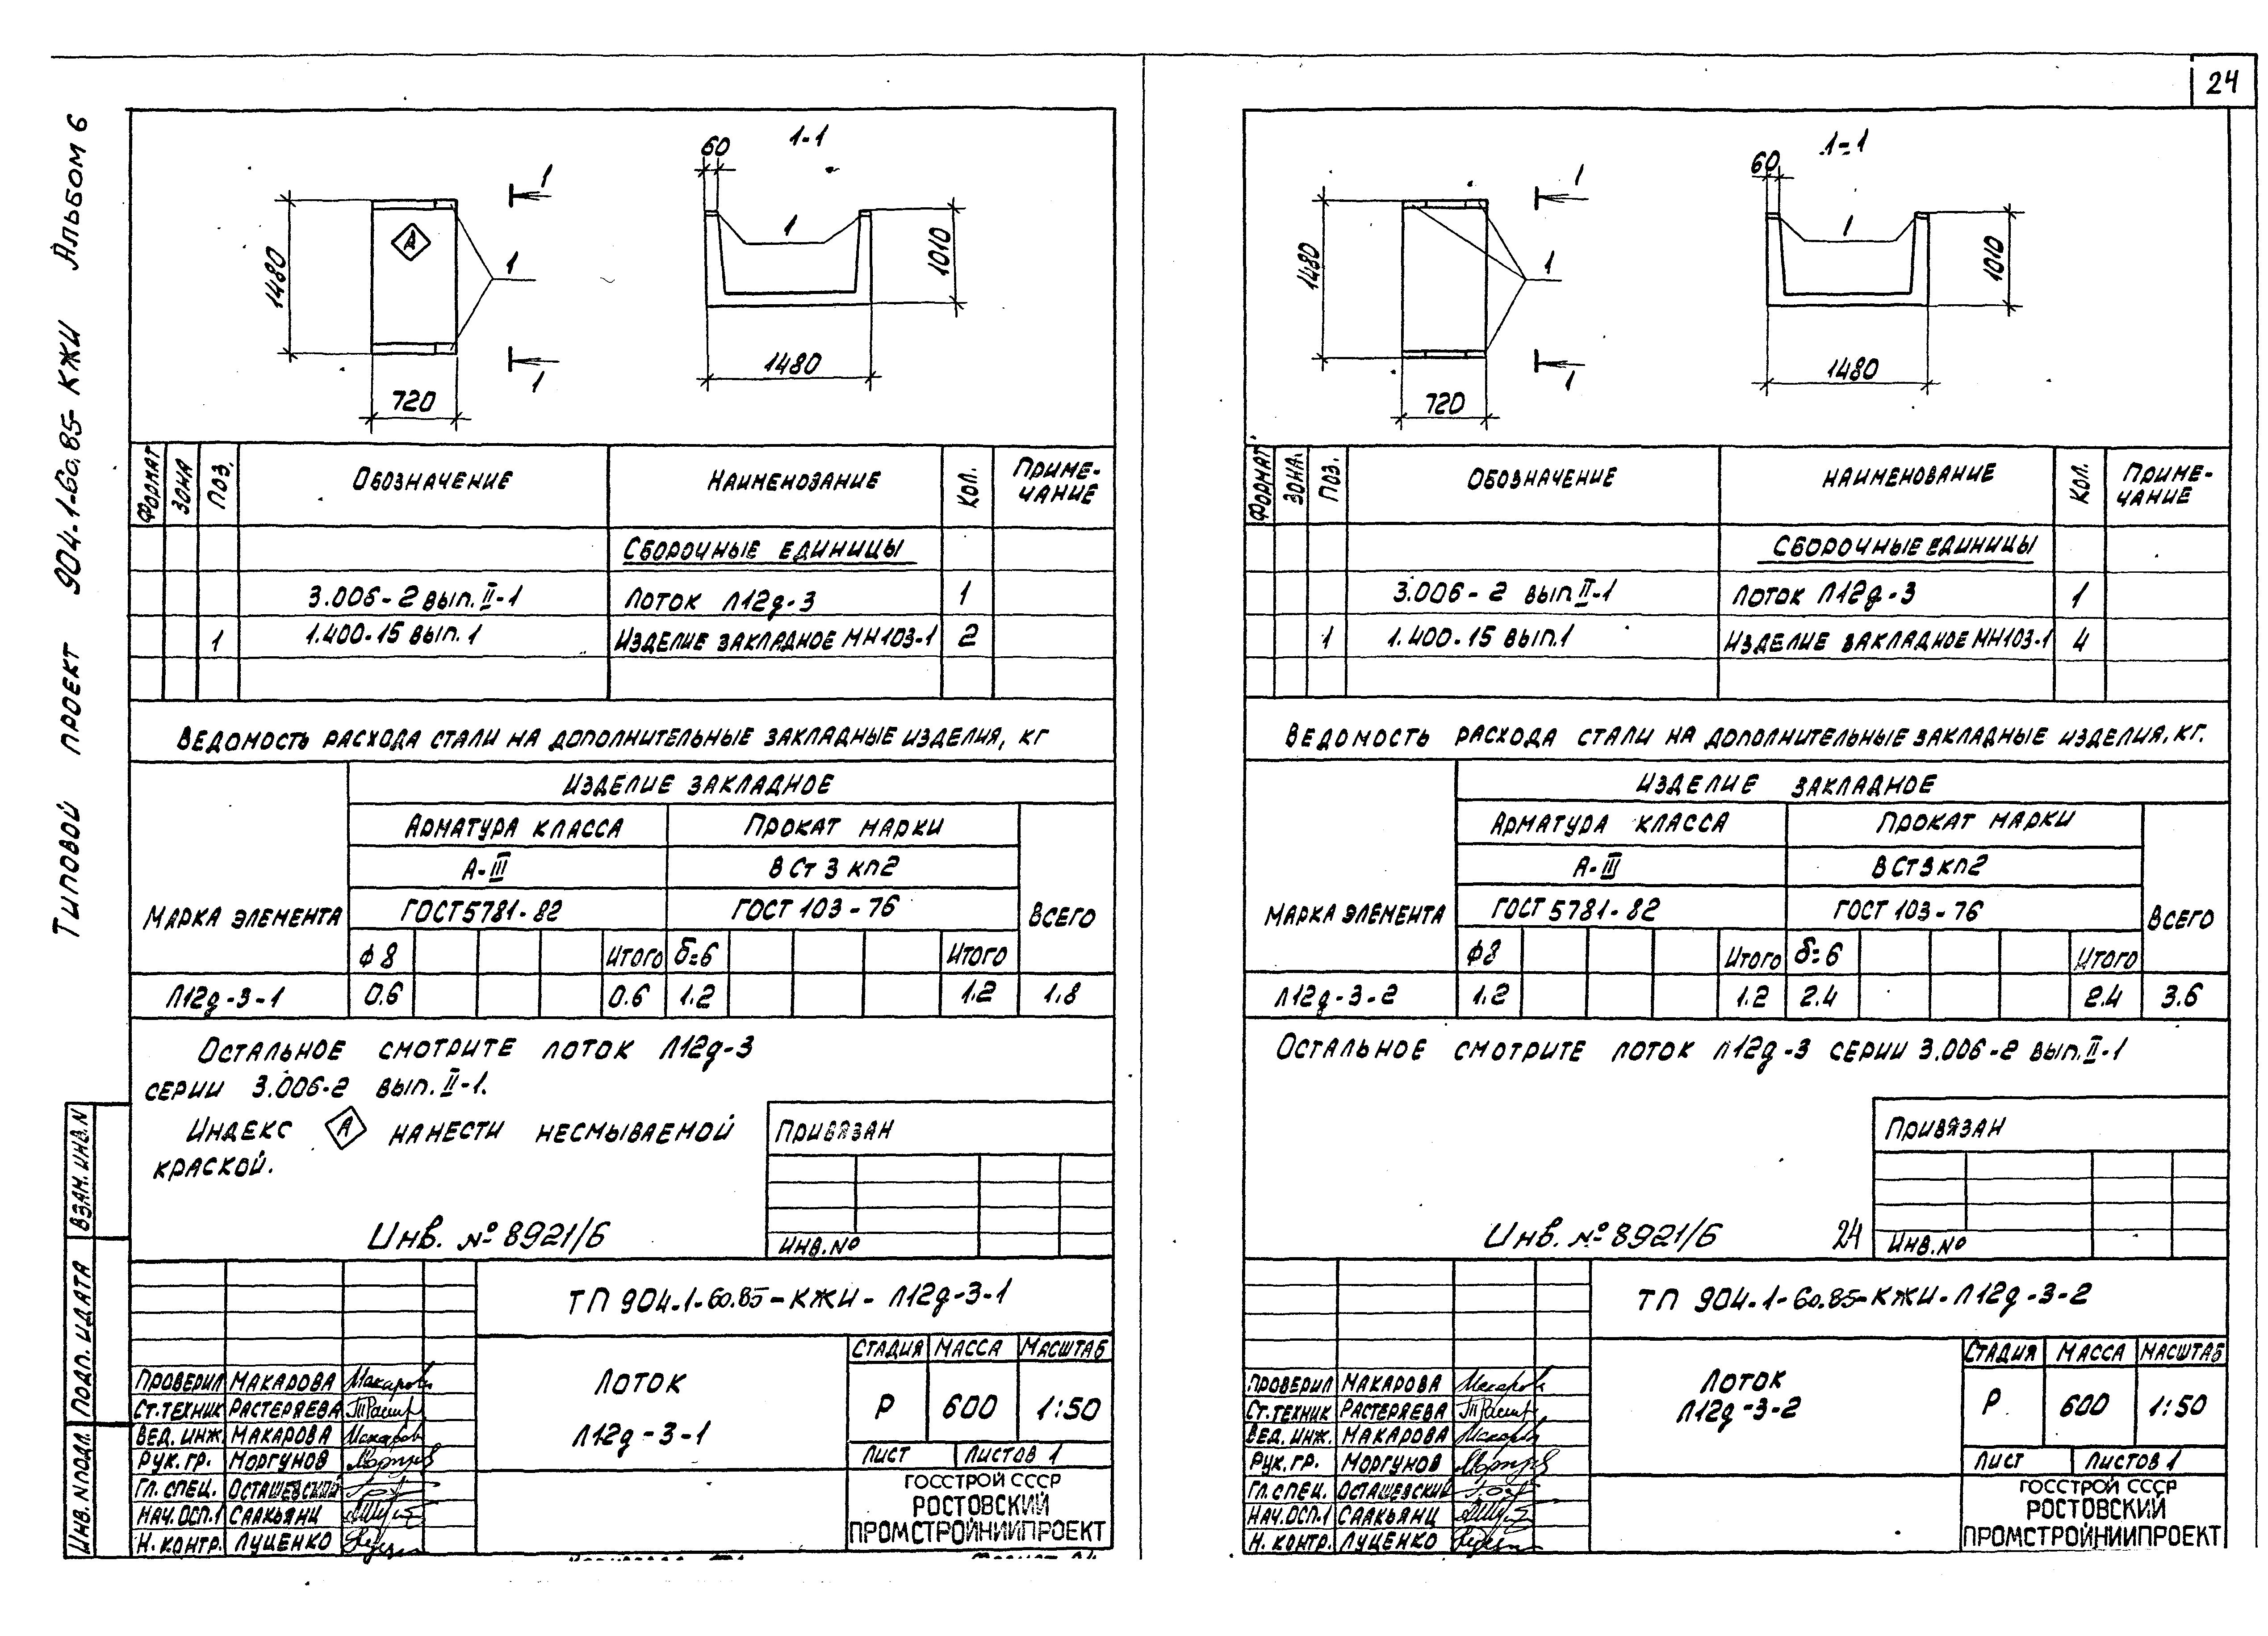 24
Типовой проект 904-1-60.85-КЖИ Альбом 6
1-1
60
1
1
А
1480
1
1
1010
1480
1
720
Формат
Зона
Поз.
Обозначение
Наименование
Кол.
Приме-
чание
Сборочные единицы
3.006-2 вып. II-1 Лоток Л12д-3 1
1 1.400-15 вып. 1 Изделие закладное МН103-1 2
Ведомость расхода стали на дополнительные закладные изделия, кг
Изделие закладное
Арматура класса Прокат марки
А-III ВСт3кп2
Марка элемента ГОСТ 5781-82 ГОСТ 103-76 Всего
ф8 Итого δ=6 Итого
Л12д-3-1 0.6 0.6 1.2 1.2 1.8
Остальное смотрите лоток Л12д-3
серии 3.006-2 вып. II-1.
Индекс А нанести несмываемой
краской.
Привязан
Инв. № 8921/6
Инв.№
ТП 904-1-60.85-КЖИ-Л12д-3-1
Стадия Масса Масштаб
Лоток
Л12д-3-1
Р 600 1:50
Лист Листов 1
Проверил Макарова
Ст.техник Растеряева
Вед. инж. Макарова
Рук. гр. Моргунов
Гл. спец. Осташевский
Нач. ОСП.1 Саакьянц
Н. контр. Луценко
ГОССТРОЙ СССР
РОСТОВСКИЙ
ПРОМСТРОЙНИИПРОЕКТ
Взам. инв. N
Подп. и дата
Инв. N подл.
1-1
60
1
1
1480
1
1
1010
1480
1
720
Формат
Зона.
Поз.
Обозначение
Наименование
Кол.
Приме-
чание
Сборочные единицы
3.006-2 вып II-1 Лоток Л12д-3 1
1 1.400-15 вып.1 Изделие закладное МН103-1 4
Ведомость расхода стали на дополнительные закладные изделия, кг.
Изделие закладное
Арматура класса Прокат марки
А-III ВСт3кп2
Марка элемента ГОСТ 5781-82 ГОСТ 103-76 Всего
ф8 Итого δ=6 Итого
Л12д-3-2 1.2 1.2 2.4 2.4 3.6
Остальное смотрите лоток Л12д-3 серии 3.006-2 вып. II-1
Привязан
Инв. № 8921/6 24
Инв.№
ТП 904-1-60.85-КЖИ-Л12д-3-2
Стадия Масса Масштаб
Лоток
Л12д-3-2
Р 600 1:50
Лист Листов 1
Проверил Макарова
Ст.техник Растеряева
Вед. инж. Макарова
Рук. гр. Моргунов
Гл. спец. Осташевский
Нач. ОСП.1 Саакьянц
Н. контр. Луценко
ГОССТРОЙ СССР
РОСТОВСКИЙ
ПРОМСТРОЙНИИПРОЕКТ